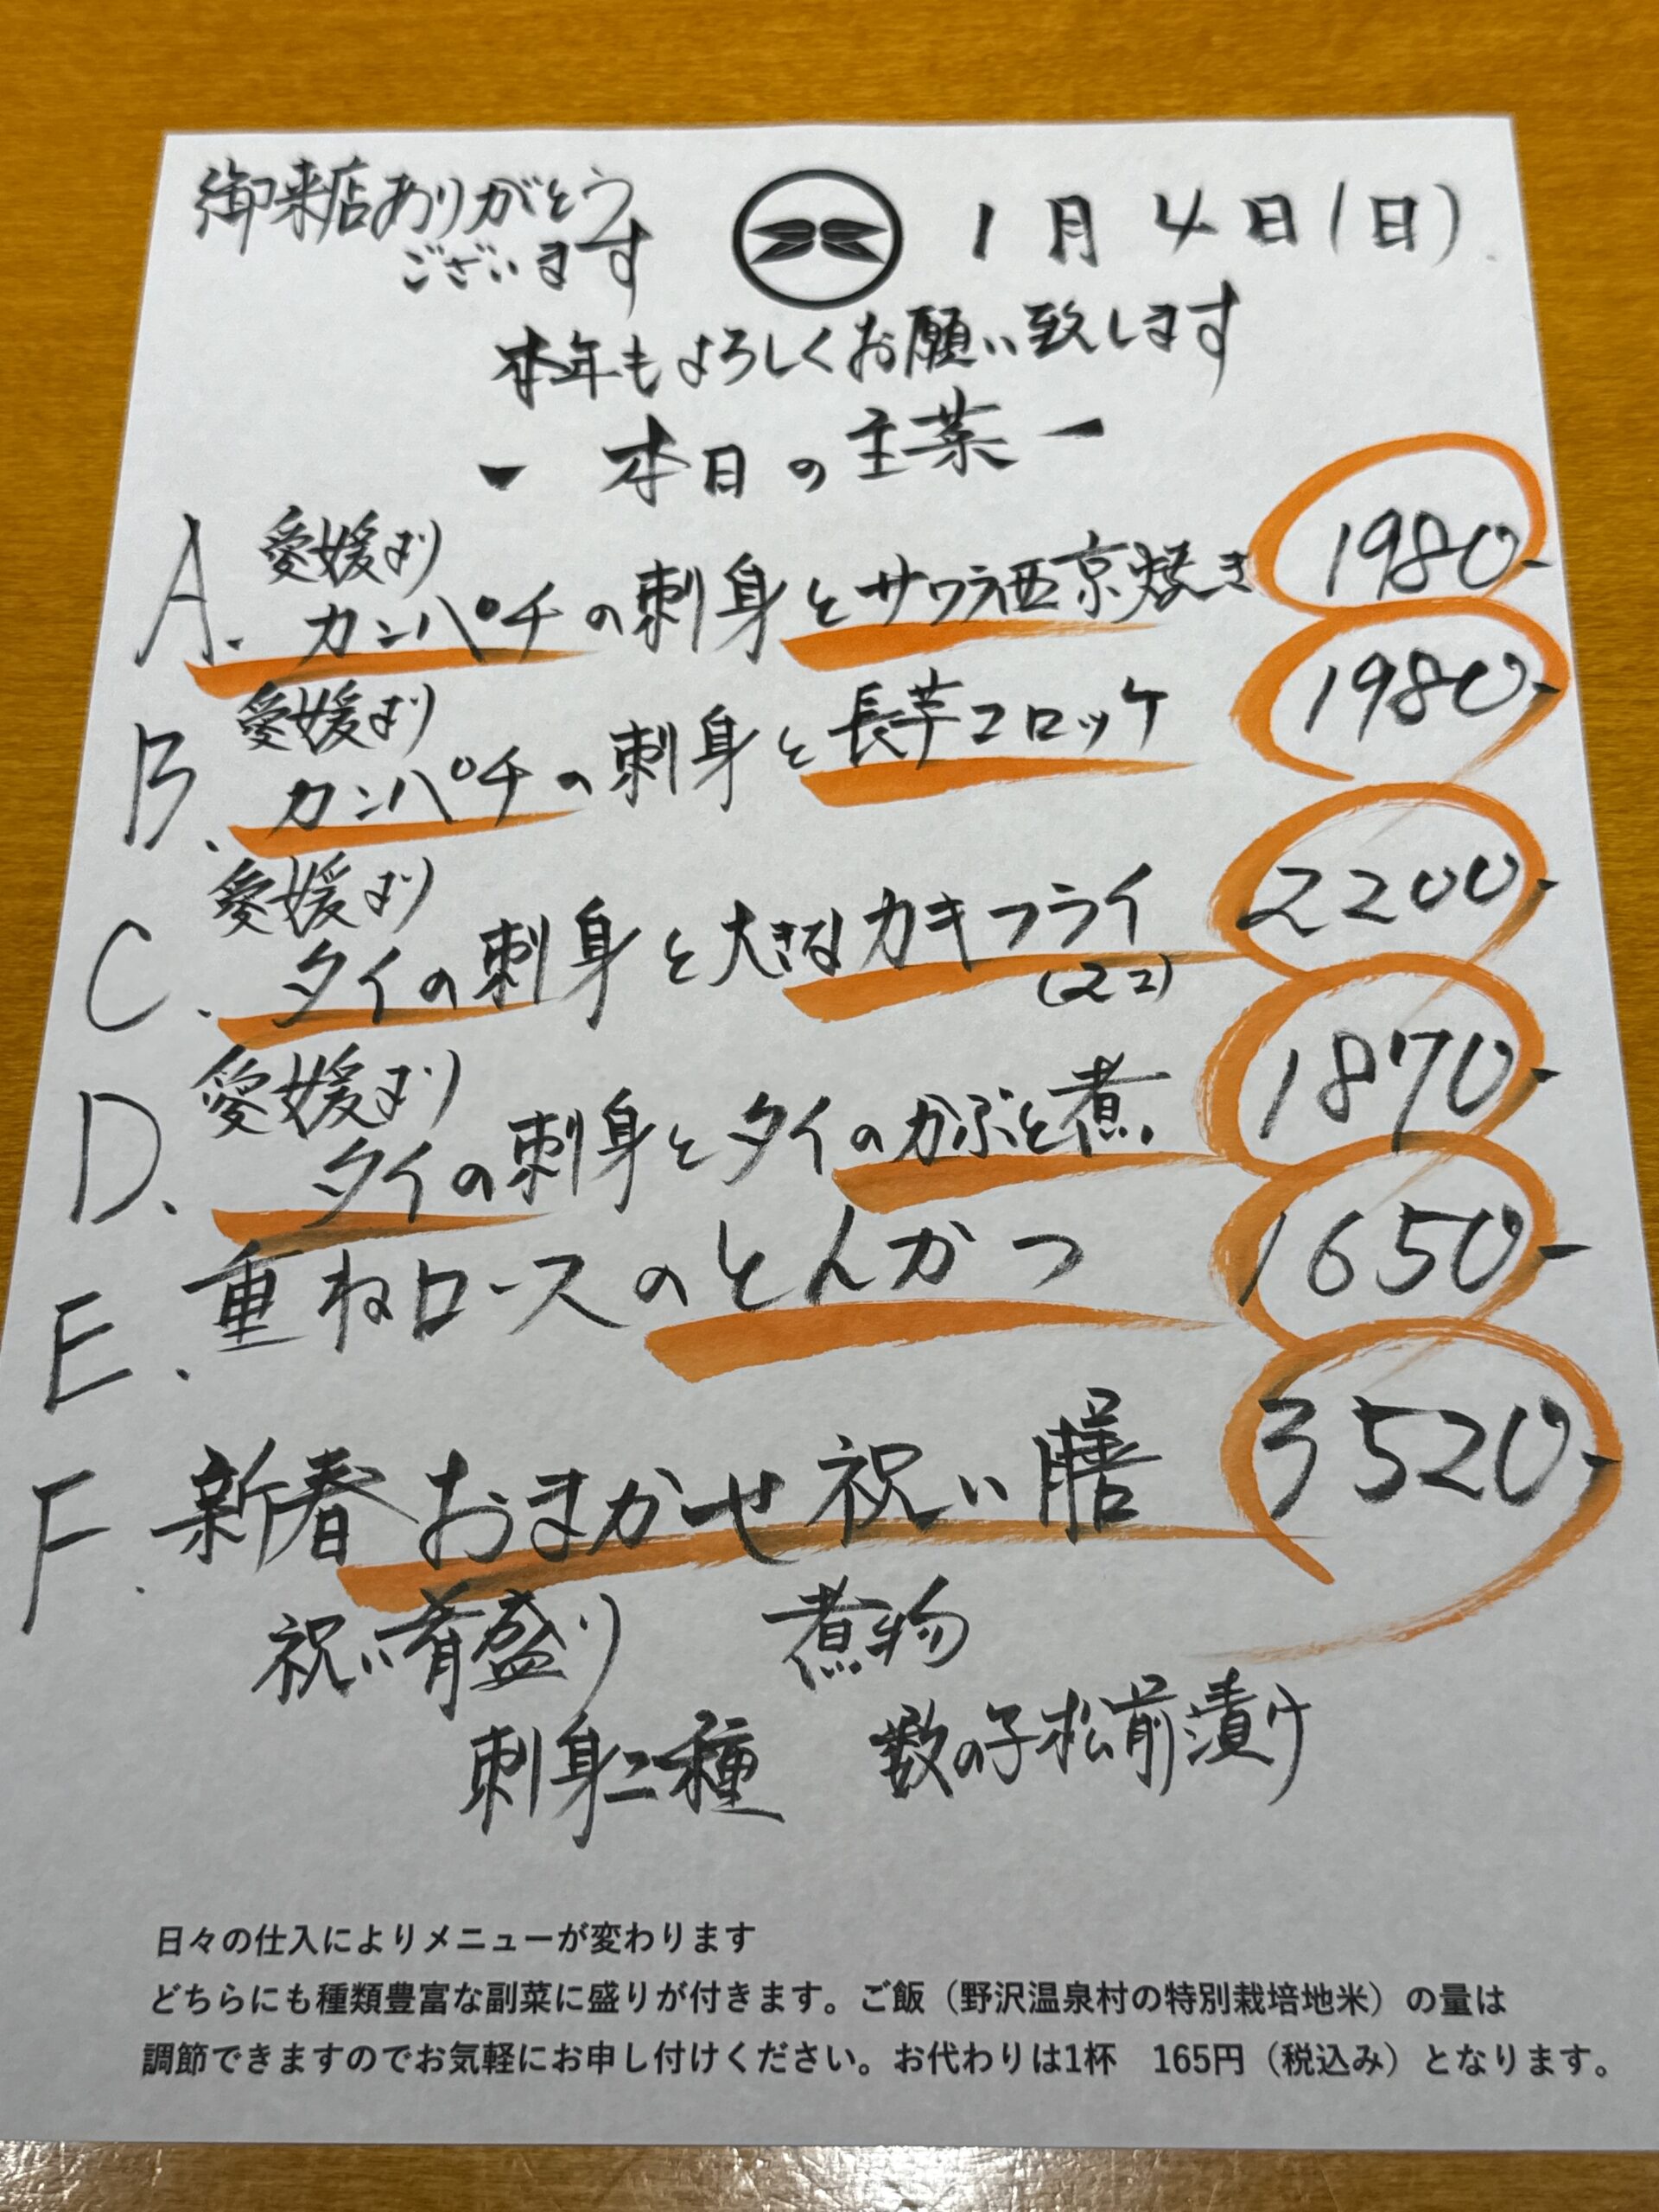 御来店ありがとう
ございます
1月4日(日)
本年もよろしくお願い致します
- 本日の主菜 -
A. 愛媛より
カンパチの刺身とサワラ西京焼き 1980-
B. 愛媛より
カンパチの刺身と長芋コロッケ 1980-
C. 愛媛より
タイの刺身と大きなカキフライ 2200-
(2コ)
D. 愛媛より
タイの刺身とタイのかぶと煮 1870-
E. 重ねロースのとんかつ 1650-
F. 新春おまかせ祝い膳 3520-
祝い肴盛り 煮物
刺身二種 数の子松前漬け
日々の仕入によりメニューが変わります
どちらにも種類豊富な副菜に盛りが付きます。ご飯（野沢温泉村の特別栽培地米）の量は
調節できますのでお気軽にお申し付けください。お代わりは1杯　165円（税込み）となります。